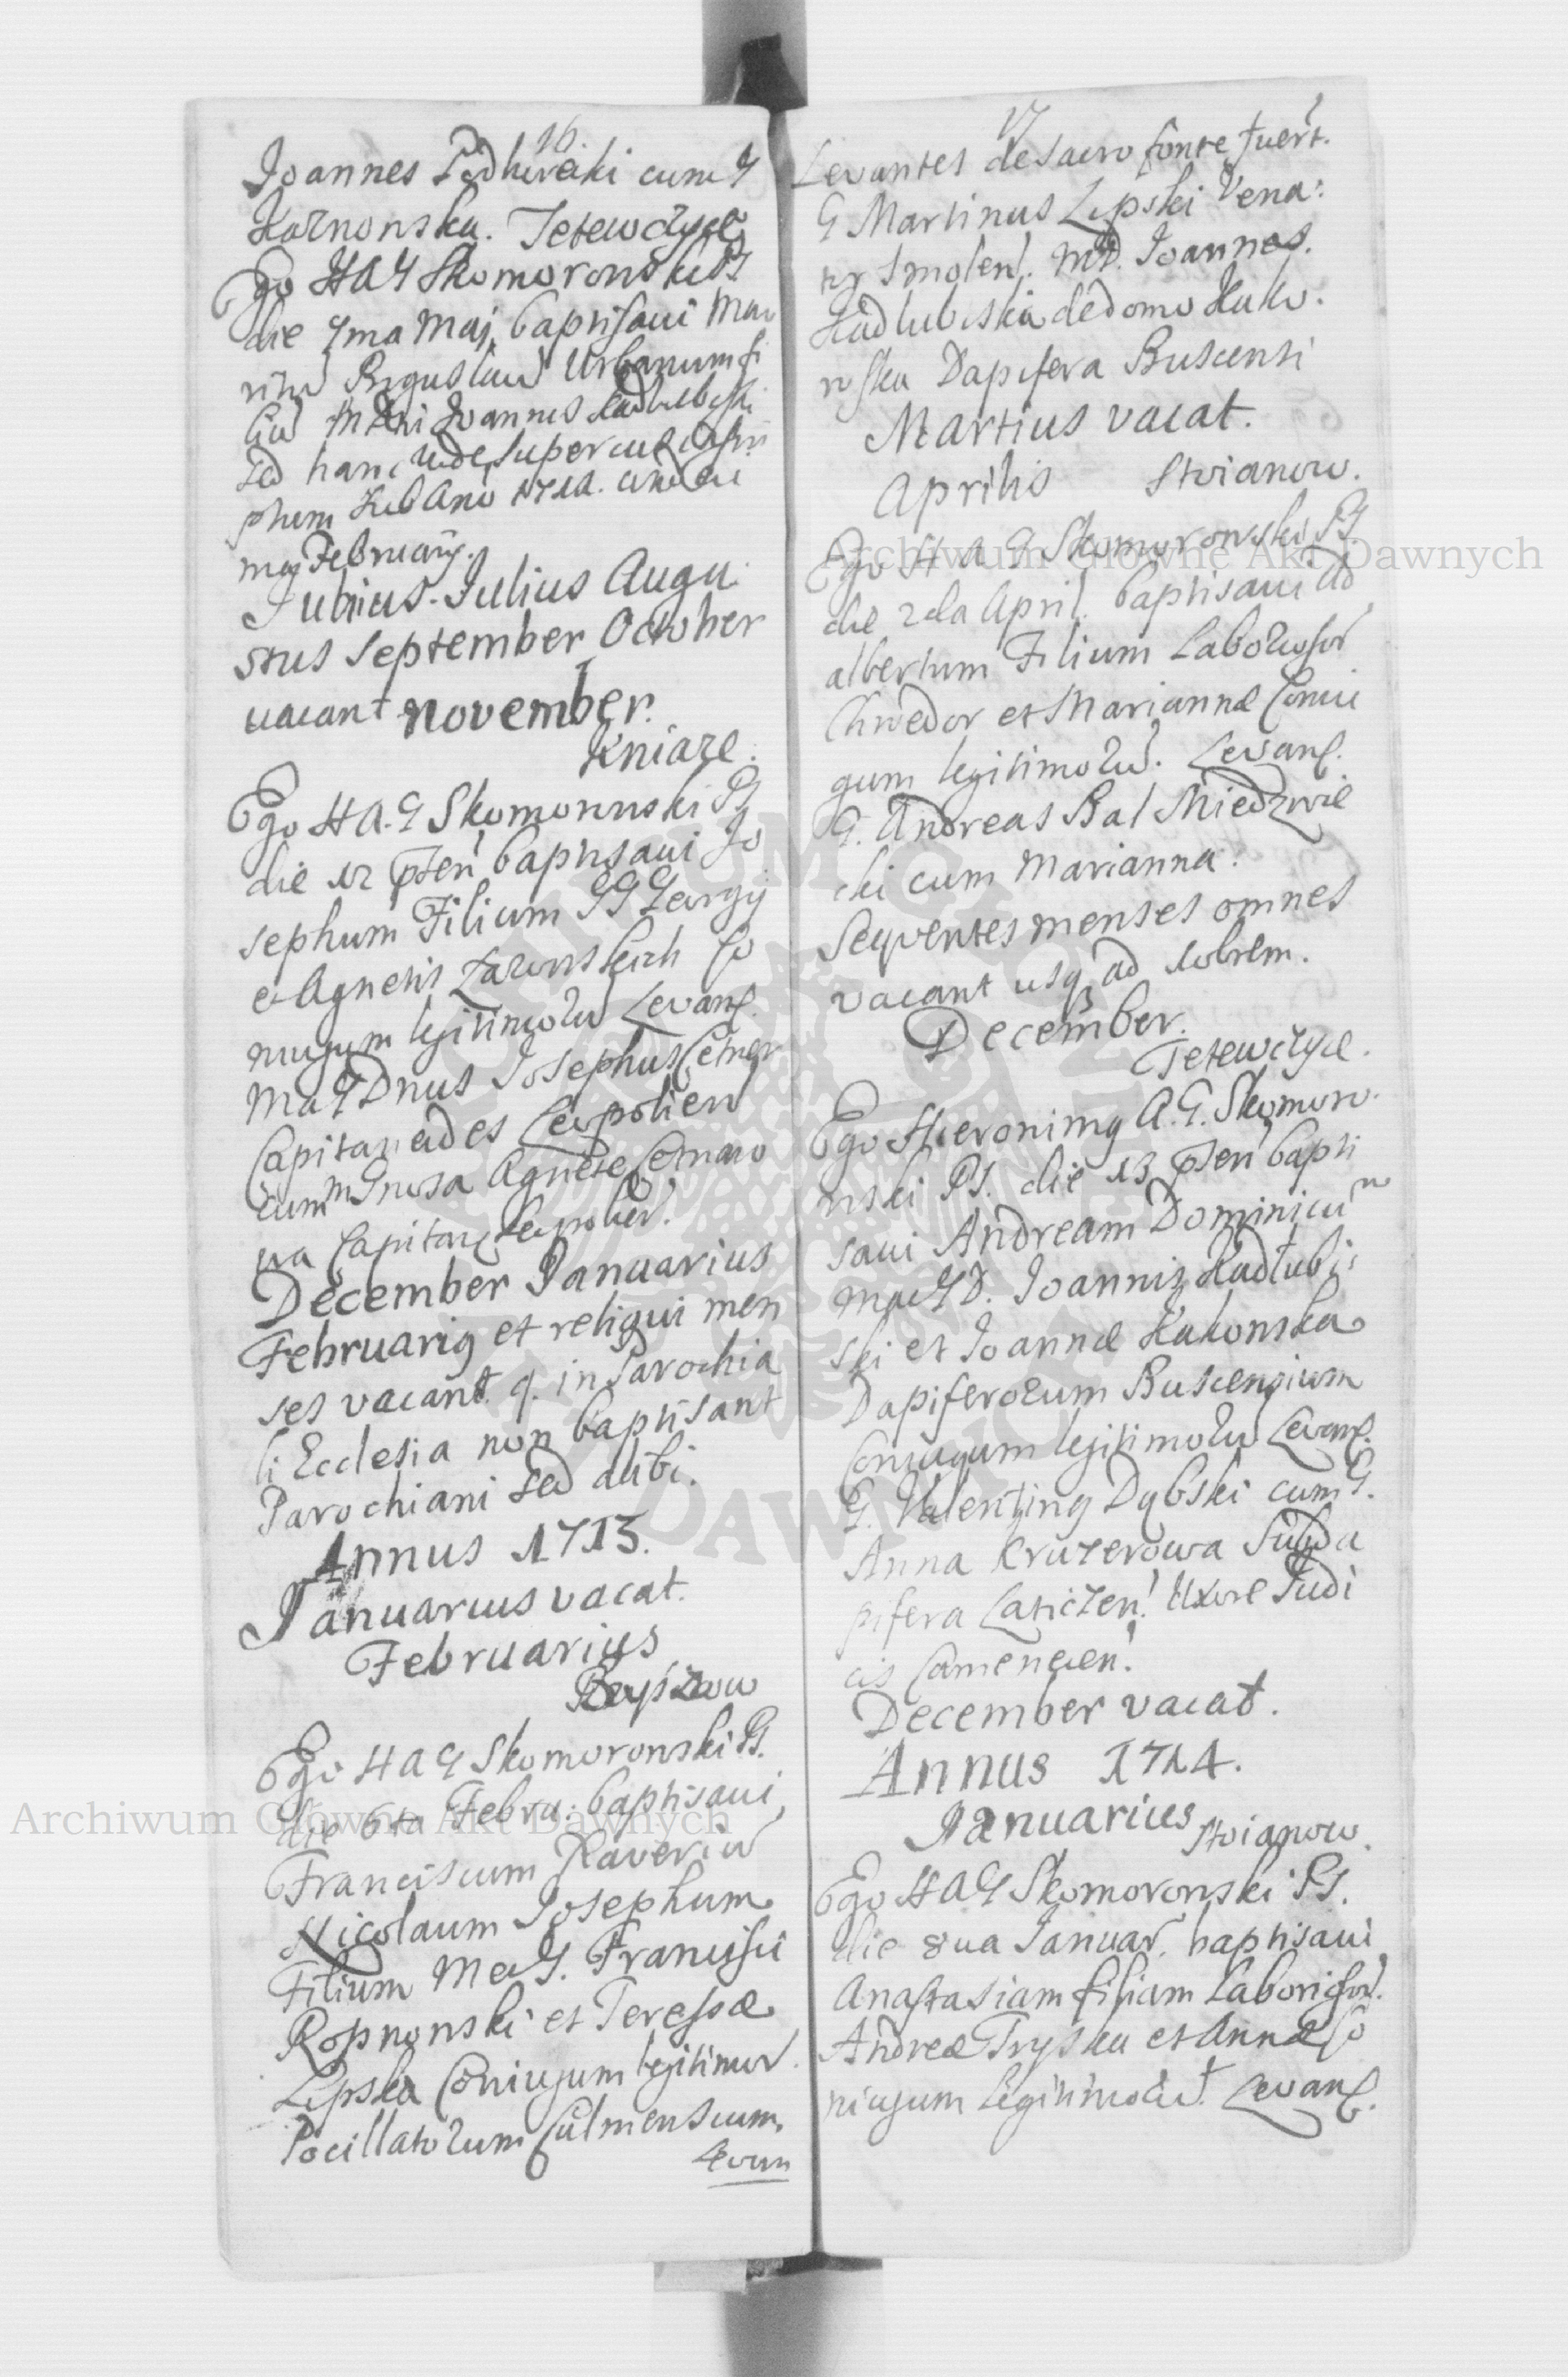 16.
Joannes Podhorecki cum G
Karnonska. Tetewczyce
Ego H A G Skomoronski PS
die 7ma Maj baptisaui Mar
Boguslaũ Urbanum fi
liũ Joannis Kadlubiski
sed hanc vide superius
Anno 1712.
Februarij.
Iunius. Iulius Augu
stus September October
vacant november.
Kniaze.
Ego H A. G Skomoronski PS
die 12 pñten baptisaui Jo
sephum Filium GG Georgij
et Agnetis Co
niugum legitimorũ Levant.
M a G Dnus Josephus Cetner
Capitaneides Leopolien
cum Agnete Cetnero
wa Capitan Leopolien.
December Januarius
Februarig et reliqui men
ses vacant. q. in Parochia
li Ecclesia non baptisant
Parochiani sed alibi.
Annus 1713.
Januarius vacat.
Februarius
Ego H A G Skomoronski PS.
die 6ta Febru: baptisaui
Franciscum Xaveriũ
Nicolaum Josephum
Filium M a G. Francisci
Ropnonski et Teressæ
Lipska Coniugum legitimor.
Pocillatorum Culmensium.
Levan
17
Levantes de sacro fonte fuert.
G Martinus Lipski Vena:
tor Smolens. MD. Joannes.
Kadlubiska de domo Kuko.
roska Dapifera Buscensi
Martius vacat.
Aprilis Stoianow.
Ego H A G Skomoronski PS.
die 2da April. baptisaui Ad
albertum Filium Laboriosor
Chwedor et Mariannæ Coniu
gum legitimorũ. Levant.
G. Andreas Bal Niedzwie
cki cum Marianna.
Sequentes menses omnes
vacant usq ad Xobrem.
December.
Tetewczyce.
Ego Hieronimg A. G. Skomoro.
nski PS. die 13 pñten bapti
saui Andream Dominicũ
M a G D. Joannis Kadłubi
ski et Joannæ Kukonska
Dapiferorum Buscensium
Coniugum legitimorũ Levant.
G. Valenting Dąbski cum G.
Anna Kruzerowa Subda
pifera Laticzen. Uxore Judi
cis Camenecen.
December vacat.
Annus 1714.
Januarius Stoianow.
Ego H A G Skomoronski PS.
die 8ua Januar. baptisaui
Anastasiam filiam Laboriosor.
Andreæ Tryska et Annæ Co
niugum Legitimorũ. Levant.
Archiwum Główne Akt Dawnych
Archiwum Główne Akt Dawnych
ARCHIWUM GŁÓWNE AKT DAWNYCH